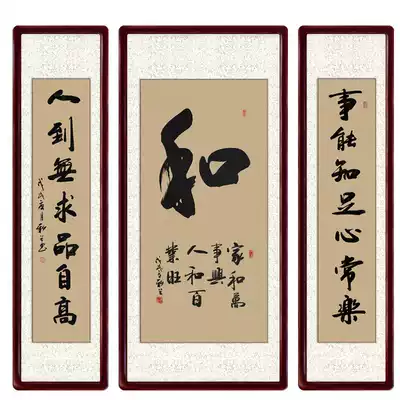 事能知足心常樂
和
家和萬
事興
人和百
業旺
人到無求品自高
戊戌